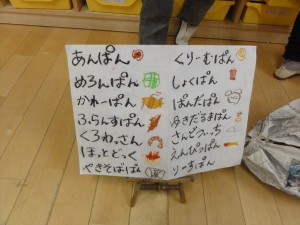 あんぱん
めろんぱん
かれーぱん
ふらんすぱん
くろわっさん
ほっとどっく
やきそばぱん
くりーむぱん
しょくぱん
ぱんだぱん
ゆきだるまぱん
さんどうぃっち
えんぴつぱん
りーちぱん